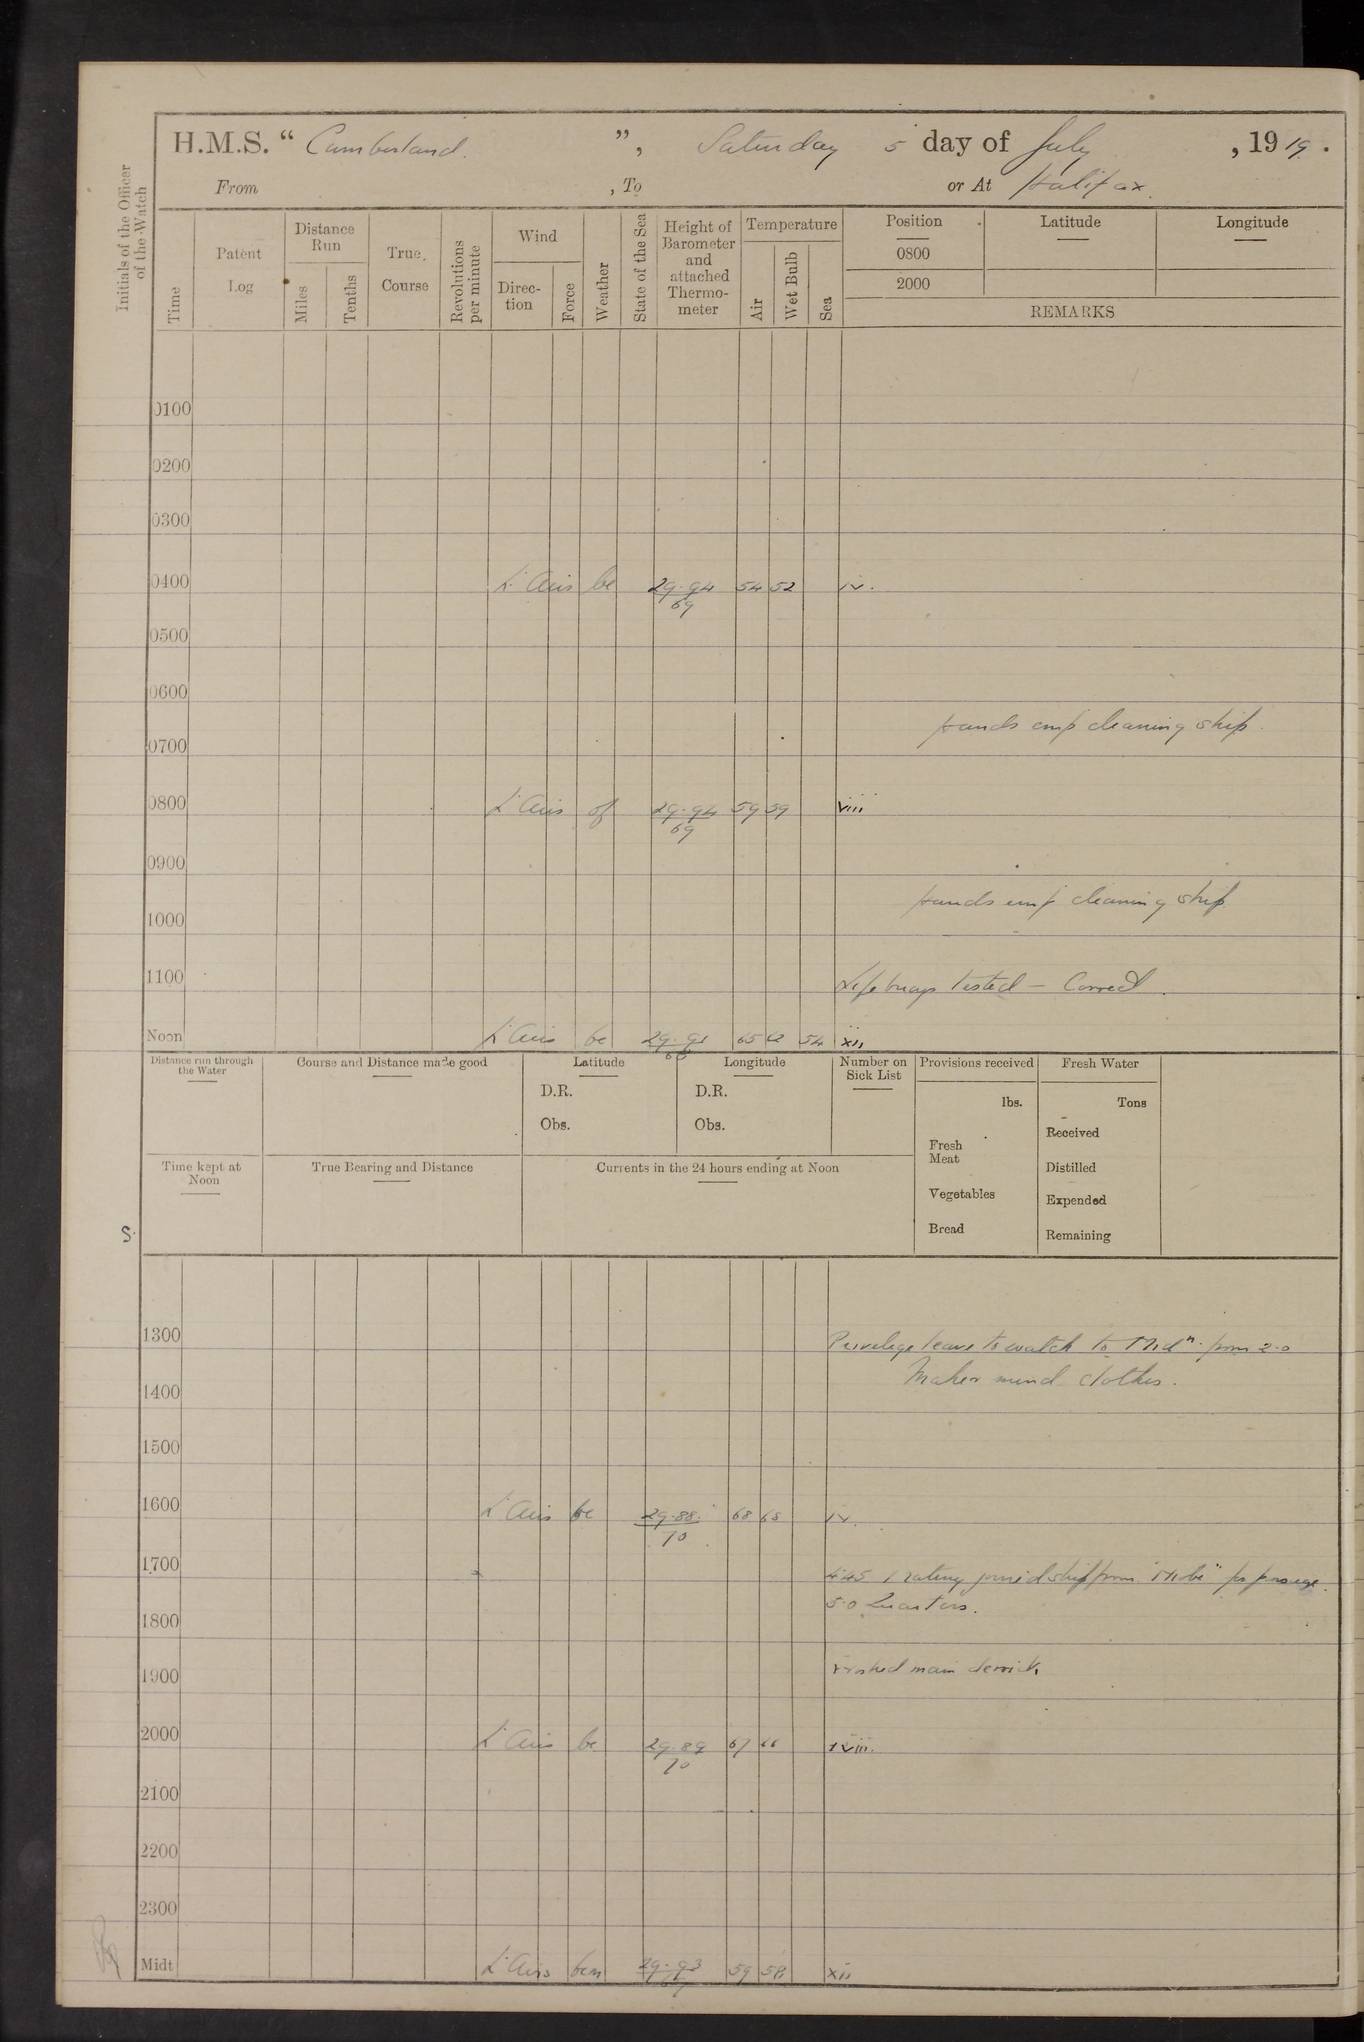 H.M.S. " Cumberland. ", Saturday 5 day of July, 1919.
From , To or At Halifax.
Initials of the Officer of the Watch
Time
Patent Log
Distance Run
Miles
Tenths
True Course
Revolutions per minute
Wind
Direction
Force
Weather
State of the Sea
Height of Barometer and attached Thermometer
Temperature
Air
Wet Bulb
Sea
Position
Latitude
Longitude
0800
2000
REMARKS
0100
0200
0300
0400 L. Airs bc 29.94 54 52 iv.
69
0500
0600
Hands emp cleaning ship.
0700
0800 L. Airs of 29.94 59 59 viii
69
0900
Hands emp cleaning ship.
1000
1100 Lifebuoys tested — Correct.
Noon L. Airs bc 29.91 65 62 54 xii
68
Distance run through the Water
Course and Distance made good
Latitude
D.R.
Obs.
Longitude
D.R.
Obs.
Number on Sick List
Provisions received
lbs.
Fresh Meat
Vegetables
Bread
Fresh Water
Tons
Received
Distilled
Expended
Remaining
Time kept at Noon
True Bearing and Distance
Currents in the 24 hours ending at Noon
S.
1300 Privilege leave to watch to Midn. from 2.0
Make & mend clothes.
1400
1500
1600 L. Airs bc 29.88 68 65 iv.
70
1700 4.45 1 rating joined ship from for passage.
5.0 Quarters.
1800
1900 main derrick
2000 L. Airs bc 29.89 67 66 viii.
70
2100
2200
2300
Midt L. Airs bcm 29.93 59 58 xii